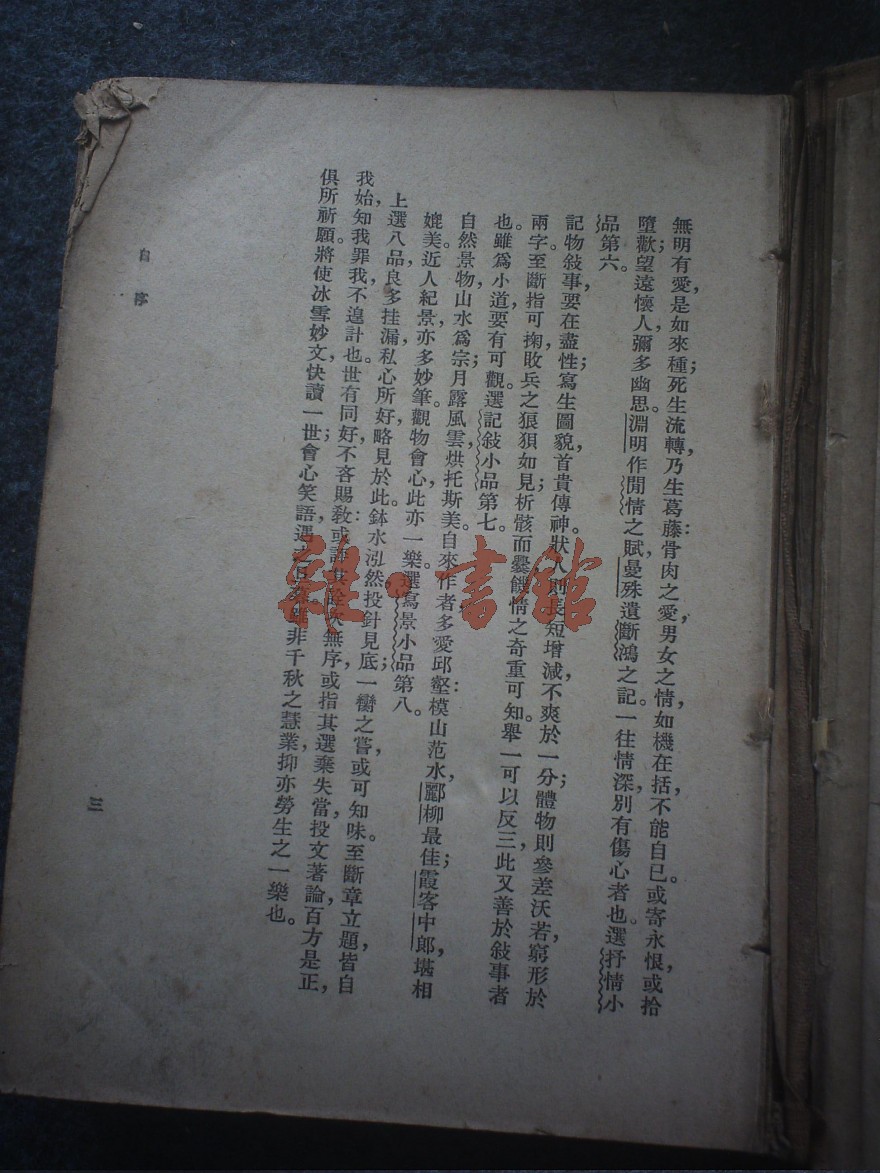 無明有愛,是如來種;死生流轉,乃生葛藤:骨肉之愛,男女之情,如機在括,不能自已。或寄永恨,或拾
墮歡;望遠懷人,彌多幽思。淵明作閒情之賦,曼殊遺斷鴻之記。一往情深,別有傷心者也。選抒情小
品第六。
記物敍事,要在盡性;寫生圖貌,首貴傳神。狀人則長短增減,不爽於一分;體物則參差沃若,窮形於
兩字。至斷指可掬,敗兵之狠狽如見;析骸而爨,饑情之奇重可知。舉一可以反三,此又善於敍事者
也。雖爲小道,要有可觀。選記敍小品第七。
自然景物,山水爲宗;月露風雲,烘托斯美。自來作者,多愛邱壑:模山范水,酈柳最佳;霞客中郞,堪相
媲美。近人紀景,亦多妙筆。觀物會心,此亦一樂。選寫景小品第八。
上選八品,良多挂漏,私心所好,略見於此。鉢水泓然,投針見底;一臠之嘗,或可知味。至斷章立題,皆自
我始,知我罪我,不遑計也。世有同好,不吝賜敎:或 其 次無序,或指其選棄失當,投文著論,百方是正,
俱所祈願。將使冰雪妙文,快讀一世;會心笑語,遇 非千秋之慧業,抑亦勞生之一樂也。
自序
三
雜·書館